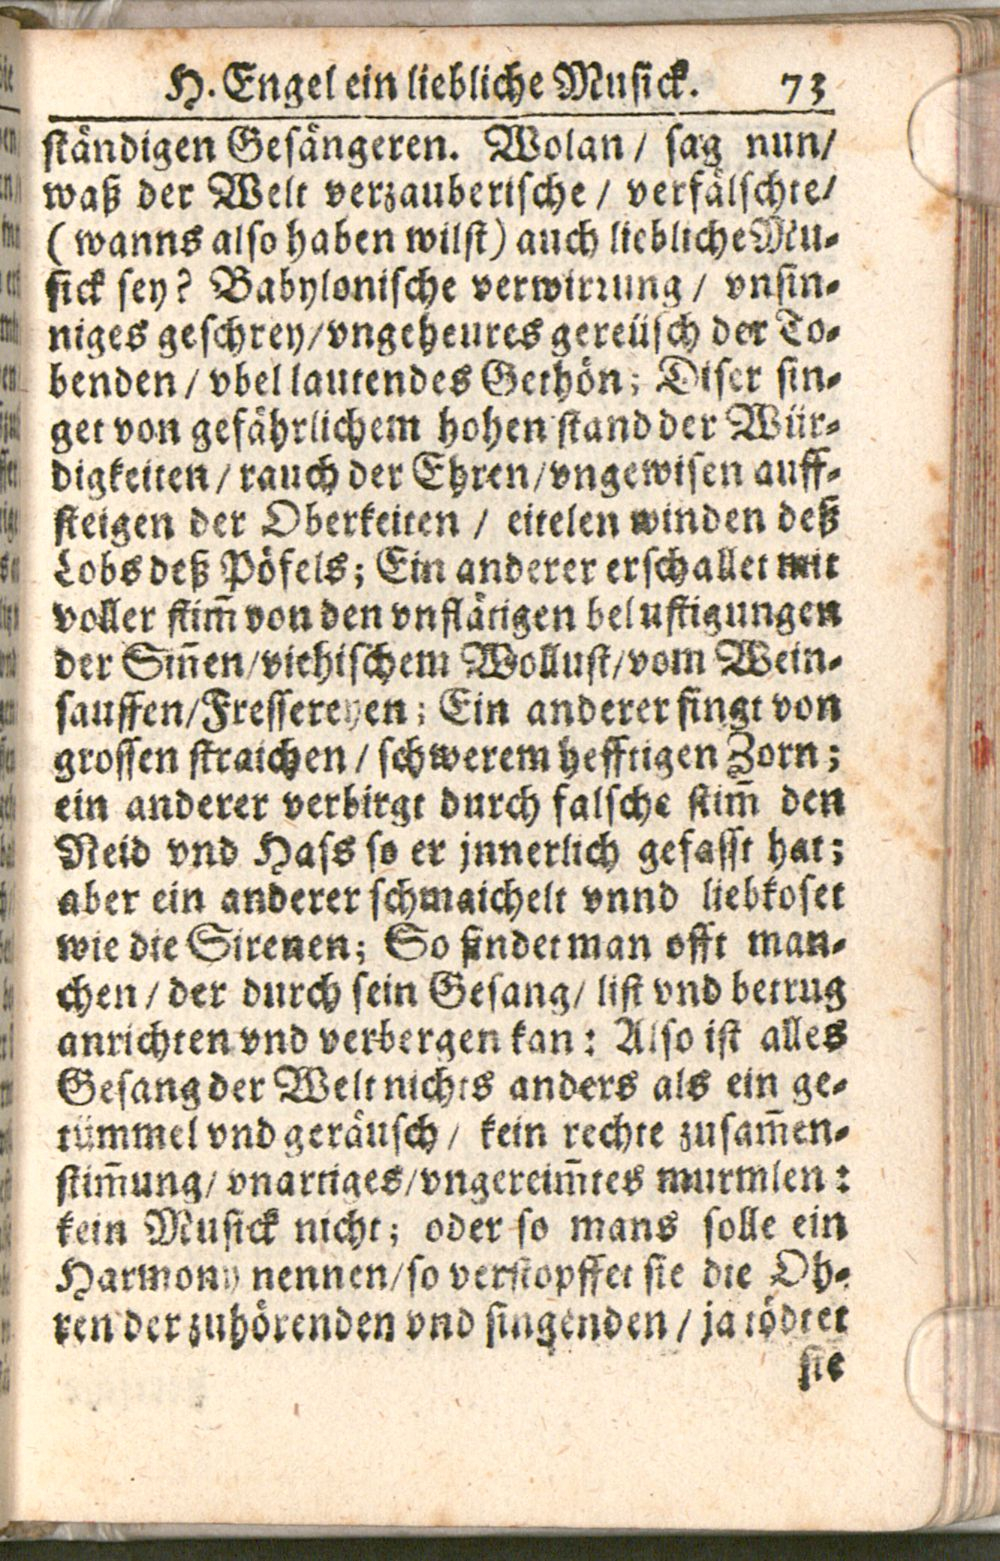 H. Engel ein liebliche Musick. 73
ständigen Gesängeren. Wolan / sag nun/
waß der Welt verzauberische / verfälschte/
( wanns also haben wilst) auch liebliche Mu-
sick sey? Babylonische verwirrung / vnsin-
niges geschrey/vngeheures gereüsch der To-
benden / vbel lautendes Gethön; Diser sin-
get von gefährlichem hohen stand der Wür-
digkeiten / rauch der Ehren/vngewisen auff-
steigen der Oberkeiten / eitelen winden deß
Lobs deß Pöfels; Ein anderer erschallet mit
voller stim̄ von den vnflätigen belustigungen
der Sin̄en/viehischem Wollust/vom Wein-
sauffen/Fressereyen; Ein anderer singt von
grossen straichen / schwerem hefftigen Zorn;
ein anderer verbirgt durch falsche stim̄ den
Neid vnd Hass so er jnnerlich gefasst hat;
aber ein anderer schmaichelt vnnd liebkoset
wie die Sirenen; So findet man offt man-
chen / der durch sein Gesang/ list vnd betrug
anrichten vnd verbergen kan: Also ist alles
Gesang der Welt nichts anders als ein ge-
tümmel vnd geräusch / kein rechte zusam̄en-
stim̄ung/ vnartiges/vngereim̄tes murmlen:
kein Musick nicht; oder so mans solle ein
Harmony nennen/so verstopffet sie die Oh-
ren der zuhörenden vnd singenden / ja tödtet
sie